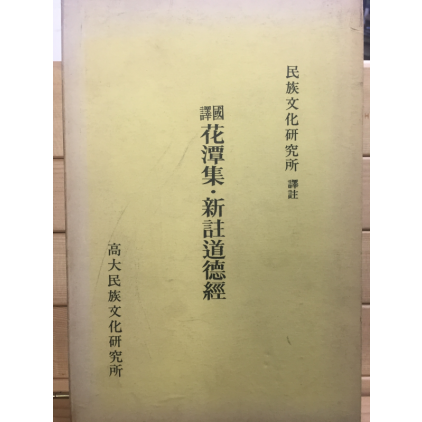 民族文化研究所 譯註
國譯 花潭集·新註道德經
高大民族文化研究所